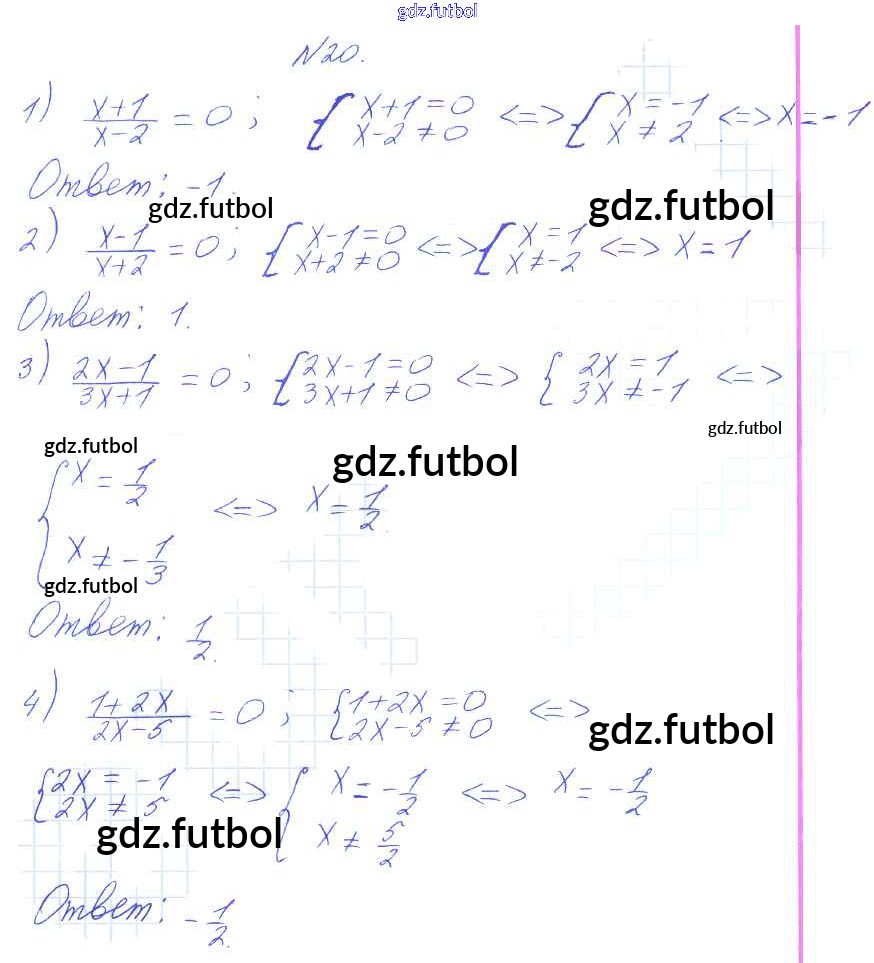 gdz.futbol
N20.
1) (x+1)/(x-2) = 0; { x+1=0 x-2≠0 <=> { x=-1 x≠2 <=> x=-1
Ответ: -1.
gdz.futbol gdz.futbol
2) (x-1)/(x+2) = 0; { x-1=0 x+2≠0 <=> { x=1 x≠-2 <=> x=1
Ответ: 1.
3) (2x-1)/(3x+1) = 0; { 2x-1=0 3x+1≠0 <=> { 2x=1 3x≠-1 <=>
gdz.futbol
gdz.futbol gdz.futbol
{ x=1/2 x≠-1/3 <=> x=1/2.
gdz.futbol
Ответ: 1/2.
4) (1+2x)/(2x-5) = 0; { 1+2x=0 2x-5≠0 <=>
gdz.futbol
{ 2x=-1 2x≠5 <=> { x=-1/2 x≠5/2 <=> x=-1/2
gdz.futbol
Ответ: -1/2.